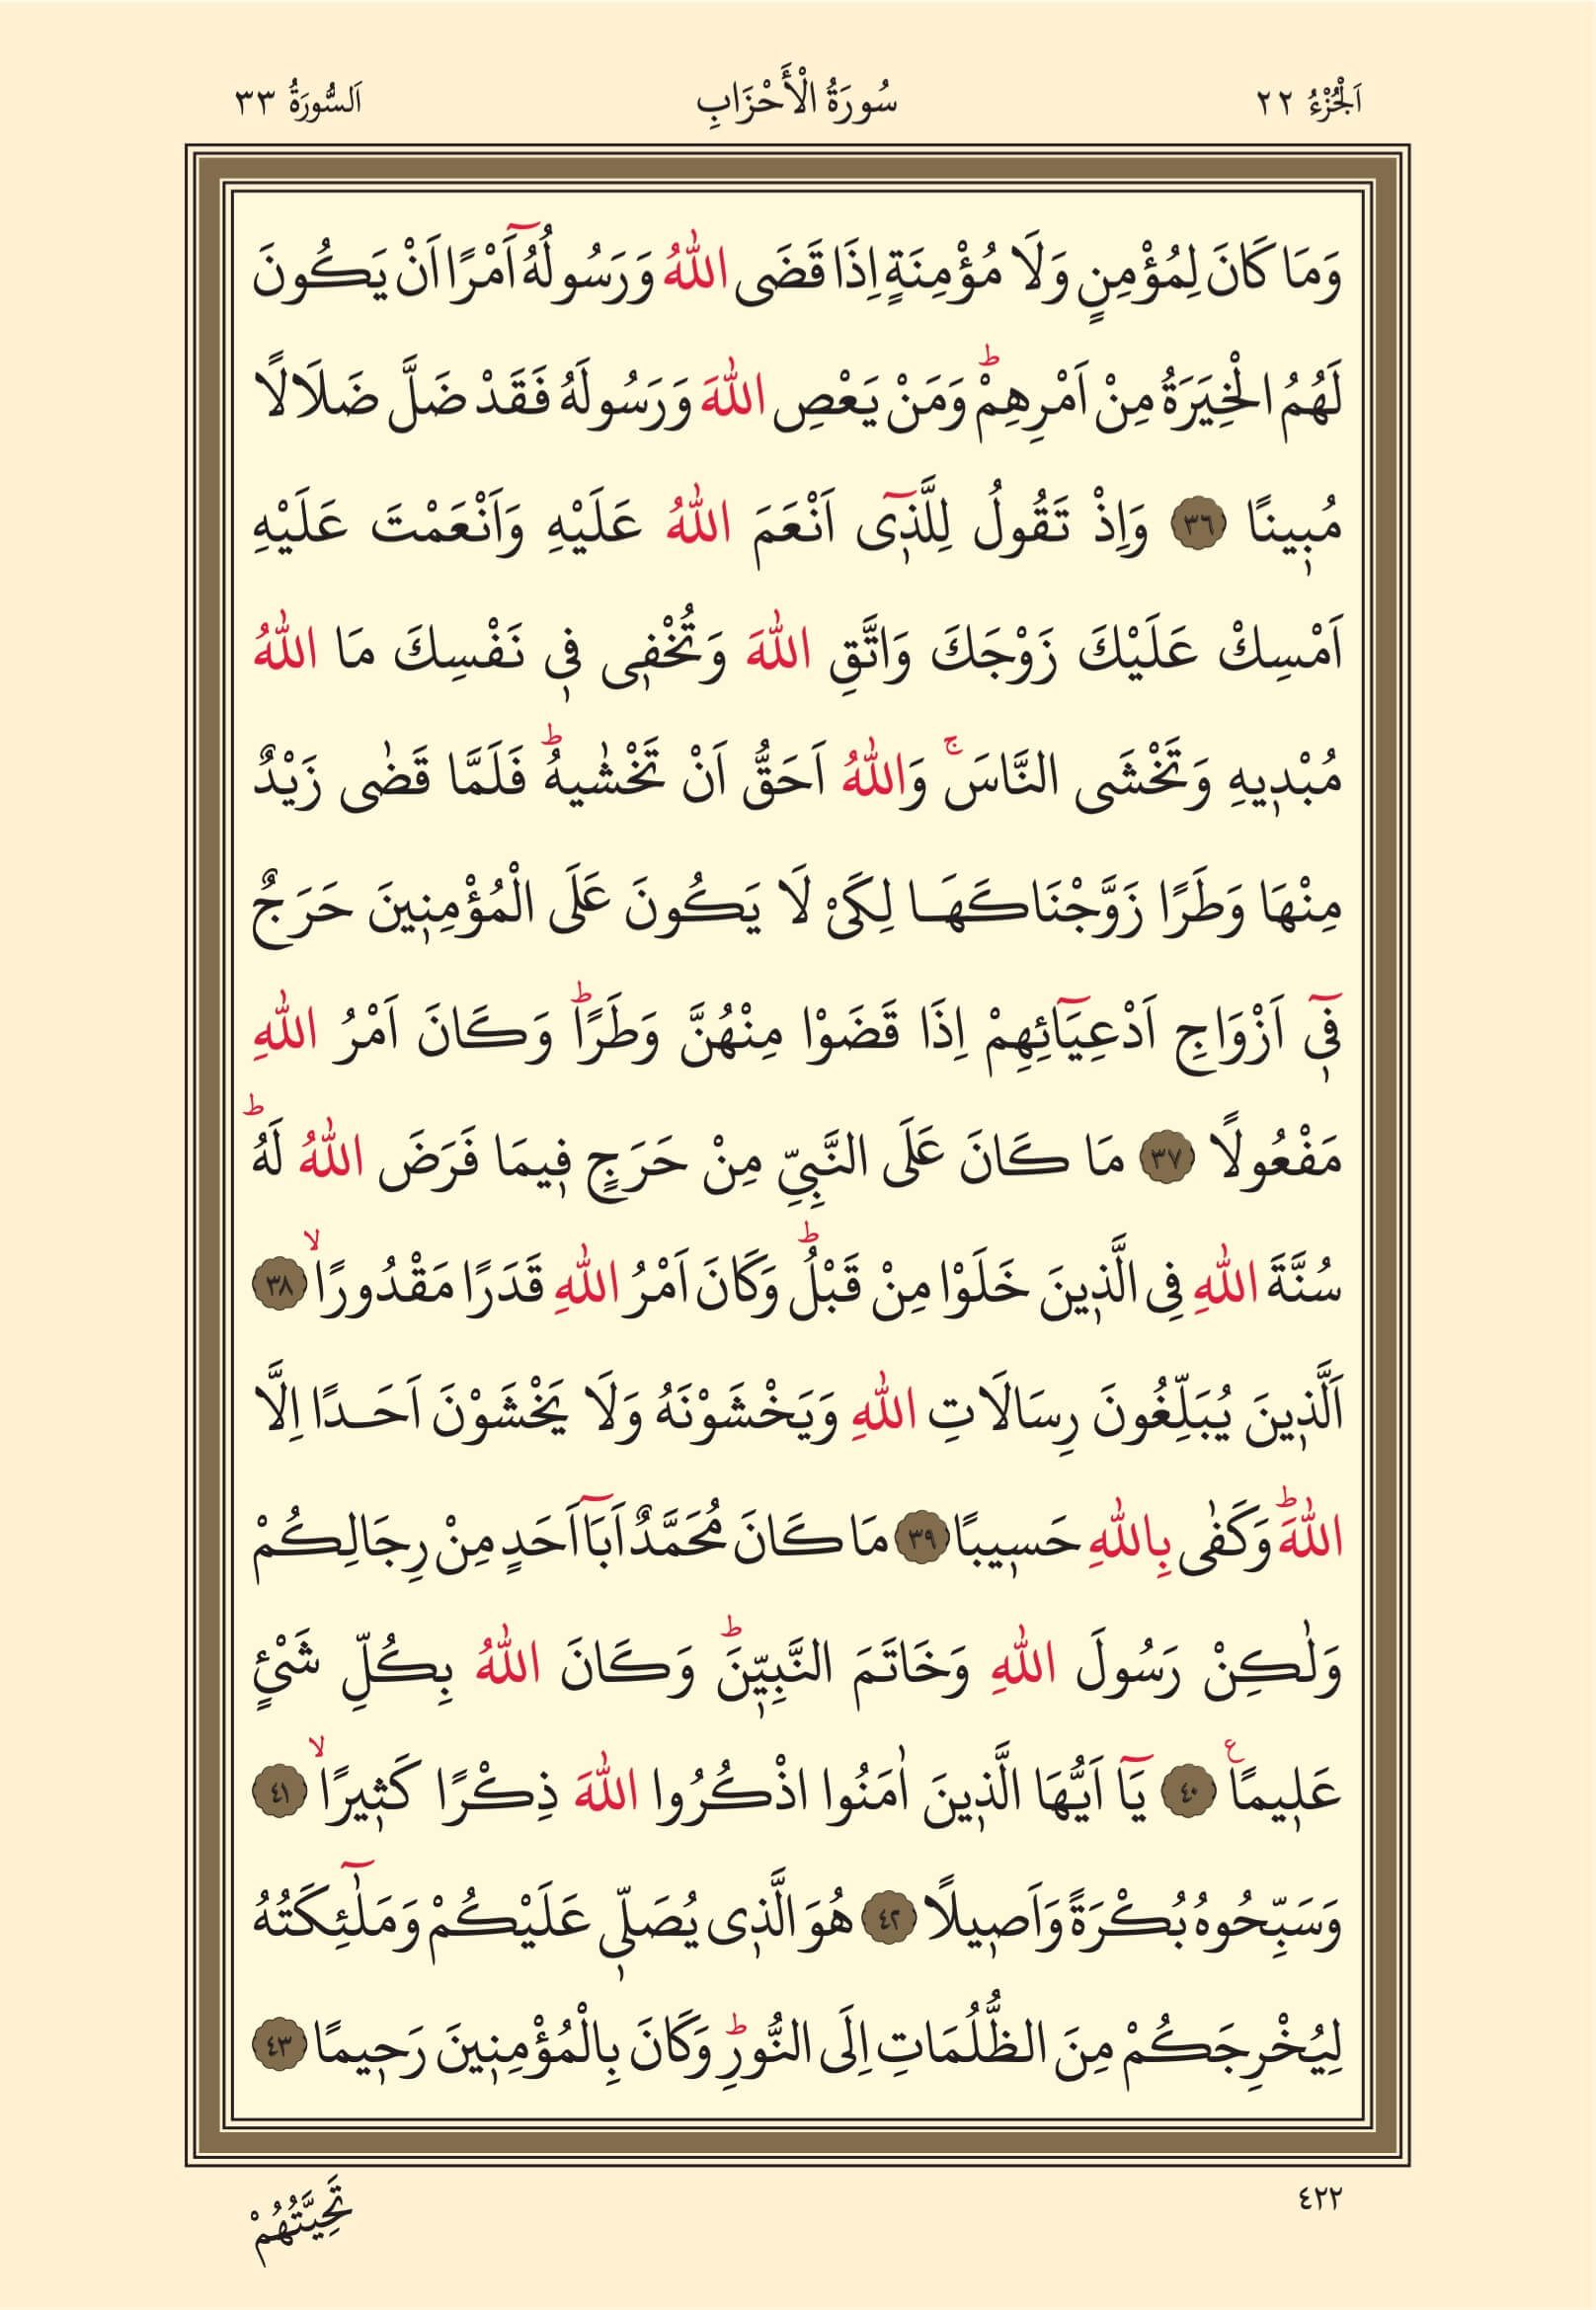 اَلْجُزْءُ ٢٢ سُورَةُ الْأَحْزَابِ اَلسُّورَةُ ٣٣
وَمَا كَانَ لِمُؤْمِنٍ وَلَا مُؤْمِنَةٍ اِذَا قَضَى اللّٰهُ وَرَسُولُهُٓ اَمْرًا اَنْ يَكُونَ
لَهُمُ الْخِيَرَةُ مِنْ اَمْرِهِمْۜ وَمَنْ يَعْصِ اللّٰهَ وَرَسُولَهُ فَقَدْ ضَلَّ ضَلَالًا
مُب۪ينًا ٣٦ وَاِذْ تَقُولُ لِلَّذ۪ٓى اَنْعَمَ اللّٰهُ عَلَيْهِ وَاَنْعَمْتَ عَلَيْهِ
اَمْسِكْ عَلَيْكَ زَوْجَكَ وَاتَّقِ اللّٰهَ وَتُخْف۪ى ف۪ى نَفْسِكَ مَا اللّٰهُ
مُبْد۪يهِ وَتَخْشَى النَّاسَۚ وَاللّٰهُ اَحَقُّ اَنْ تَخْشٰيهُۜ فَلَمَّا قَضٰى زَيْدٌ
مِنْهَا وَطَرًا زَوَّجْنَاكَهَا لِكَىْ لَا يَكُونَ عَلَى الْمُؤْمِن۪ينَ حَرَجٌ
ف۪ٓى اَزْوَاجِ اَدْعِيَٓائِهِمْ اِذَا قَضَوْا مِنْهُنَّ وَطَرًاۜ وَكَانَ اَمْرُ اللّٰهِ
مَفْعُولًا ٣٧ مَا كَانَ عَلَى النَّبِىِّ مِنْ حَرَجٍ ف۪يمَا فَرَضَ اللّٰهُ لَهُۜ
سُنَّةَ اللّٰهِ فِى الَّذ۪ينَ خَلَوْا مِنْ قَبْلُۜ وَكَانَ اَمْرُ اللّٰهِ قَدَرًا مَقْدُورًاۙ ٣٨
اَلَّذ۪ينَ يُبَلِّغُونَ رِسَالَاتِ اللّٰهِ وَيَخْشَوْنَهُ وَلَا يَخْشَوْنَ اَحَدًا اِلَّا
اللّٰهَۜ وَكَفٰى بِاللّٰهِ حَس۪يبًا ٣٩ مَا كَانَ مُحَمَّدٌ اَبَٓا اَحَدٍ مِنْ رِجَالِكُمْ
وَلٰكِنْ رَسُولَ اللّٰهِ وَخَاتَمَ النَّبِيّ۪نَۜ وَكَانَ اللّٰهُ بِكُلِّ شَىْءٍ
عَل۪يمًاࣖ ٤٠ يَٓا اَيُّهَا الَّذ۪ينَ اٰمَنُوا اذْكُرُوا اللّٰهَ ذِكْرًا كَث۪يرًاۙ ٤١
وَسَبِّحُوهُ بُكْرَةً وَاَص۪يلًا ٤٢ هُوَ الَّذ۪ى يُصَلّ۪ى عَلَيْكُمْ وَمَلٰٓئِكَتُهُ
لِيُخْرِجَكُمْ مِنَ الظُّلُمَاتِ اِلَى النُّورِۜ وَكَانَ بِالْمُؤْمِن۪ينَ رَح۪يمًا ٤٣
٤٢٢ تَحِيَّتُهُمْ